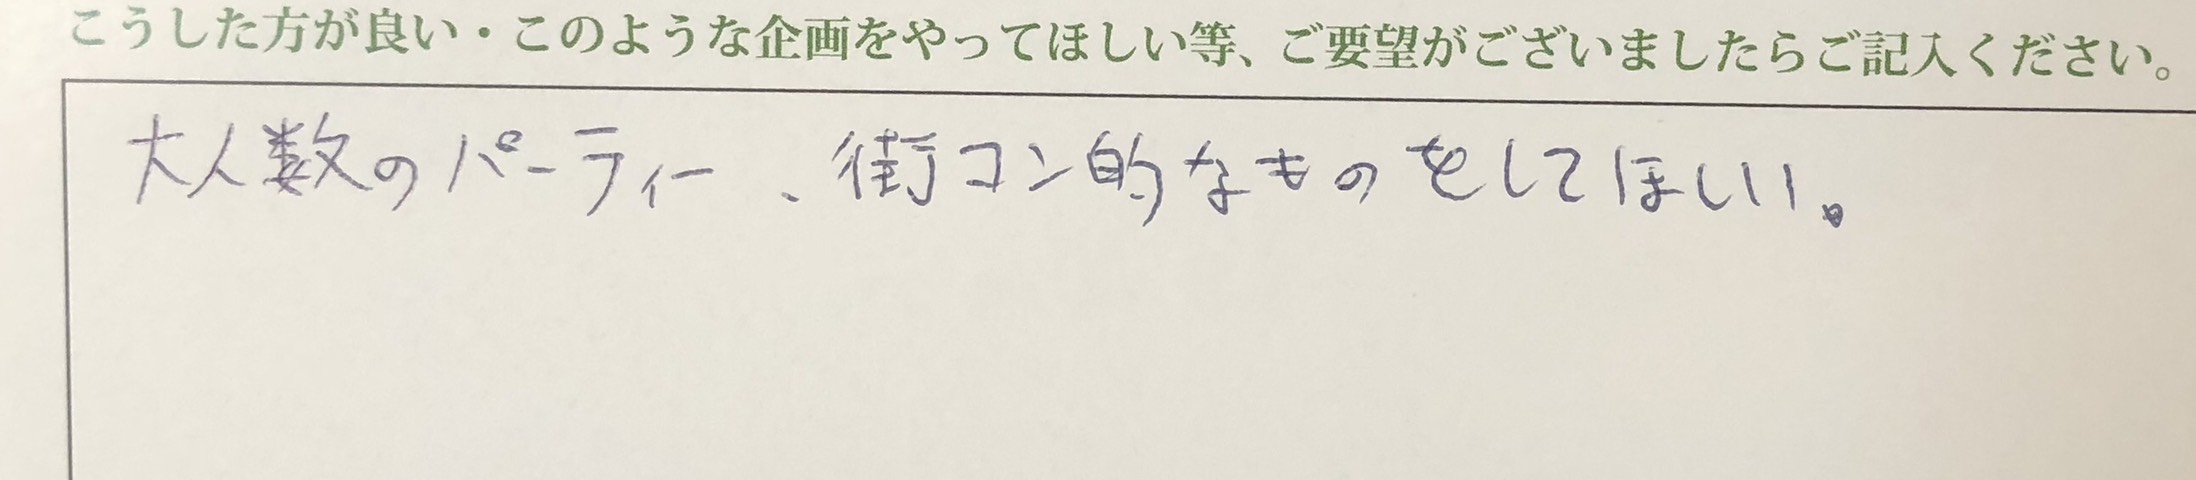 こうした方が良い・このような企画をやってほしい等、ご要望がございましたらご記入ください。
大人数のパーティー、街コン的なものをしてほしい。